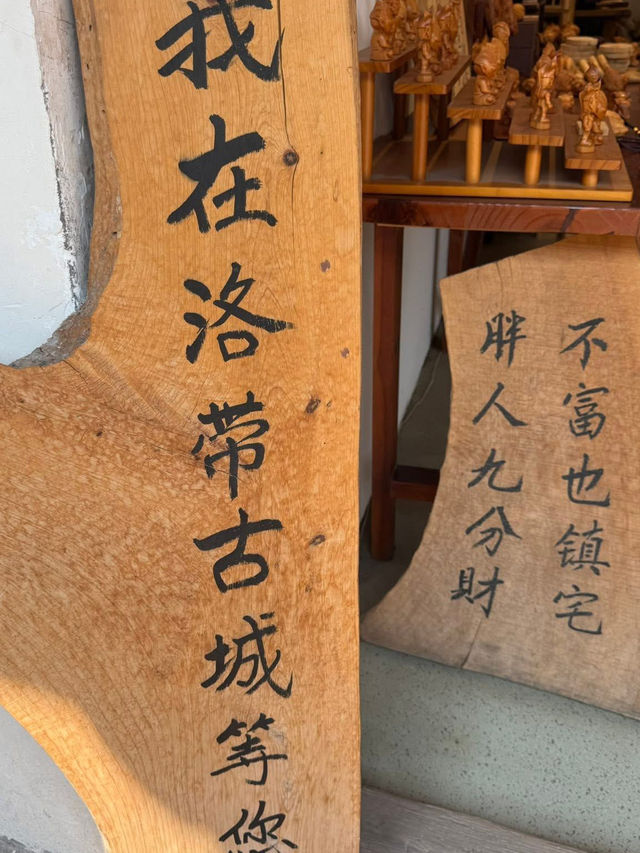 我在洛帶古城等您
不富也镇宅
胖人九分財